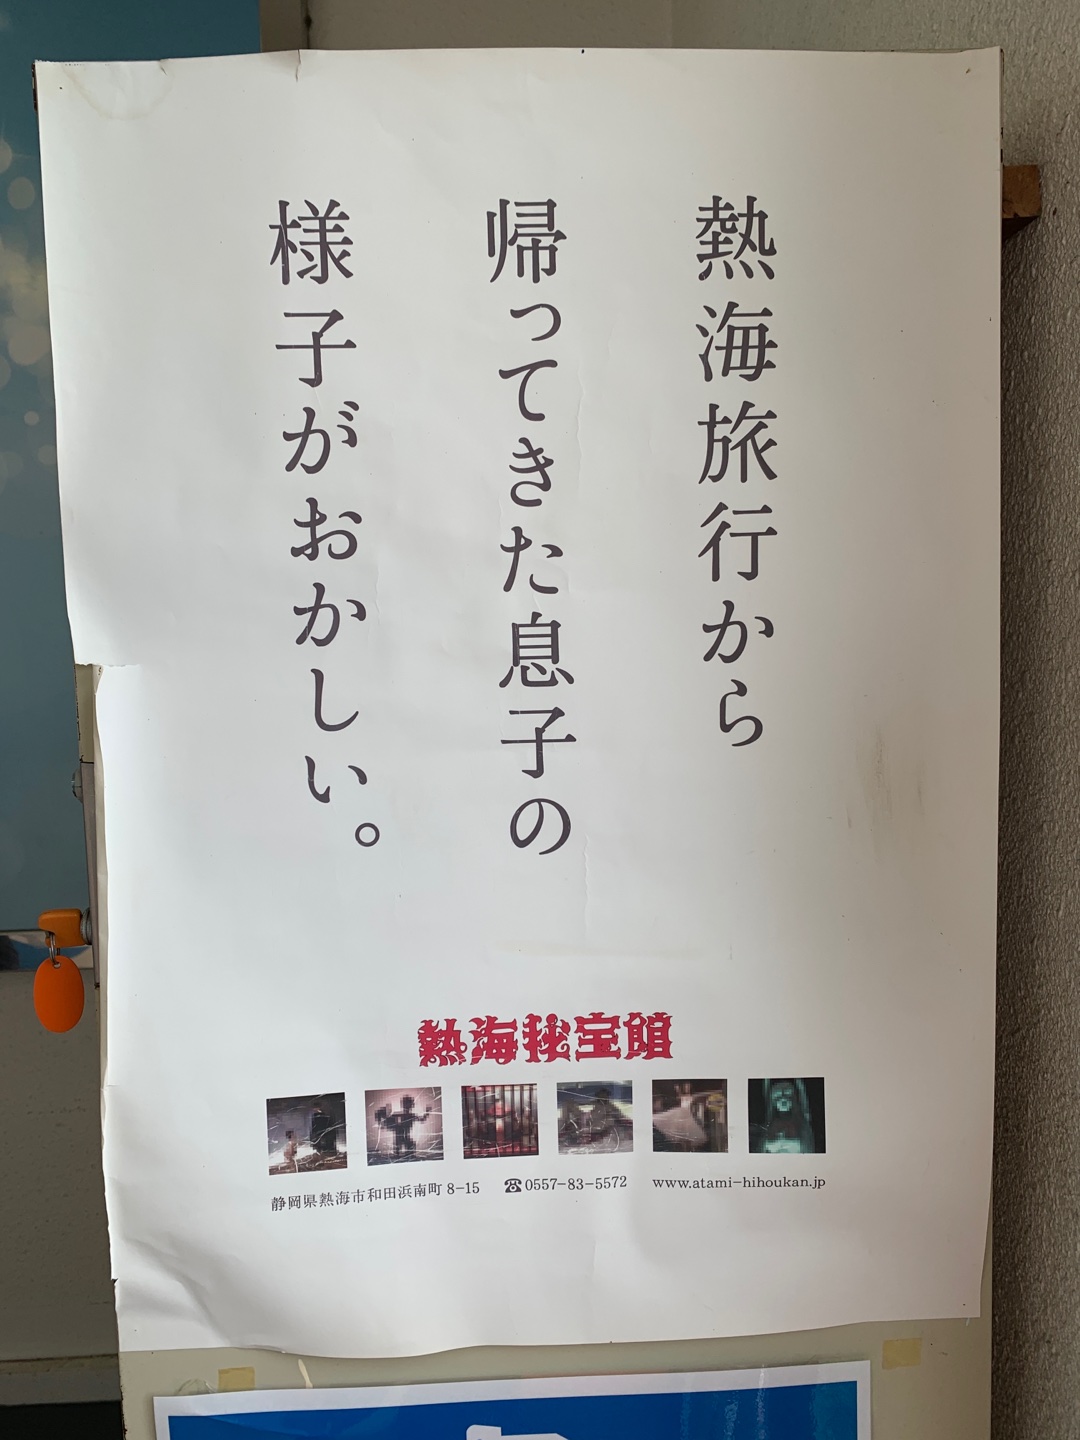 熱海旅行から
帰ってきた息子の
様子がおかしい。
熱海秘宝館
静岡県熱海市和田浜南町8-15 ☎0557-83-5572 www.atami-hihoukan.jp